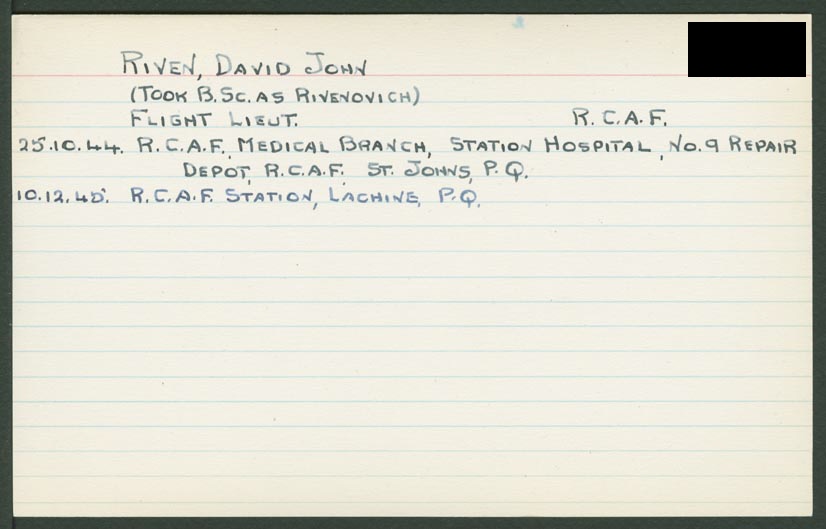 RIVEN, DAVID JOHN
(TOOK B.SC. AS RIVENOVICH)
FLIGHT LIEUT. R.C.A.F.
25.10.44. R.C.A.F. MEDICAL BRANCH, STATION HOSPITAL, NO.9 REPAIR
DEPOT, R.C.A.F. ST. JOHNS, P.Q.
10.12.45. R.C.A.F. STATION, LACHINE, P.Q.